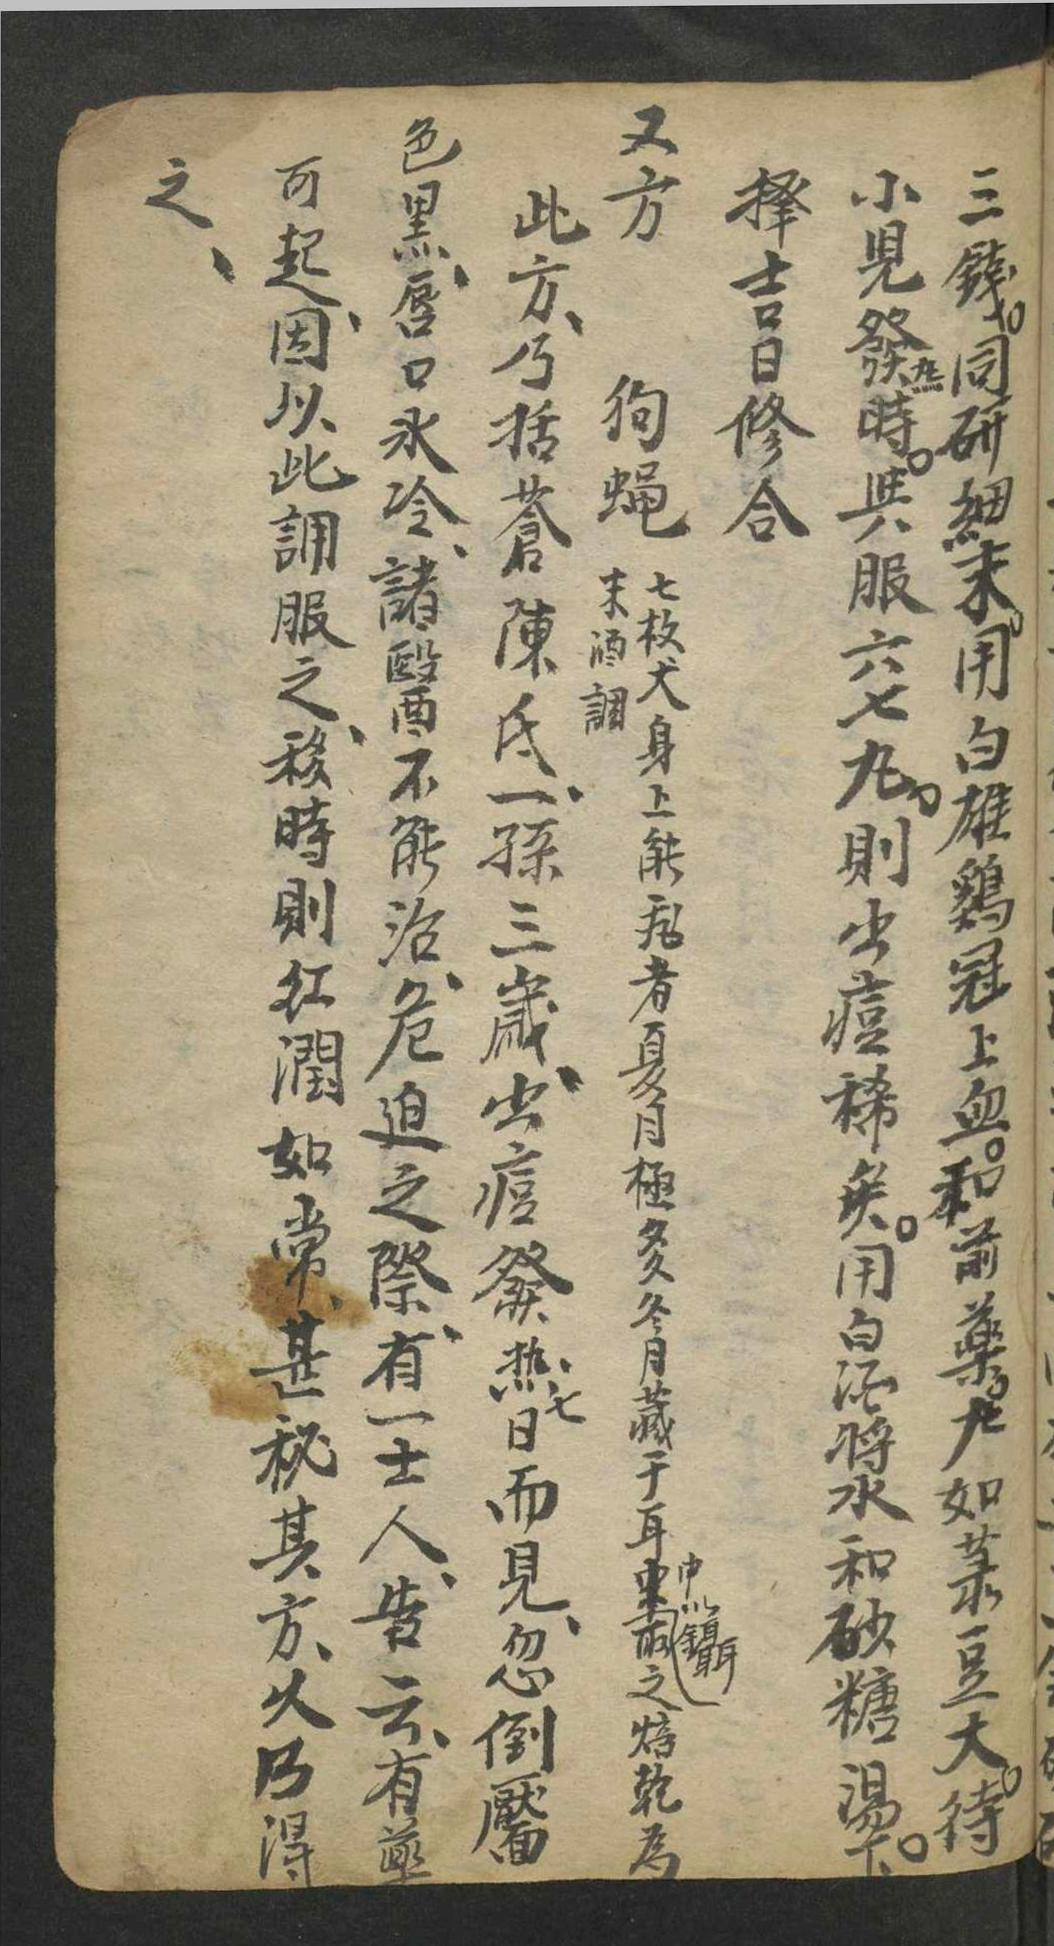 三錢。同研細末。用白雄鷄冠上血。和前藥。丸如菉豆大。待
小児發热時。與服六七丸。則出痘稀矣。用白酒將水和砂糖湯下。
擇吉日修合
又方　狗蝇
七枚犬身上能飛者夏月極多冬月藏于耳中以鑷取之焙乾為
末酒調
此方、乃括蒼陳氏一孫三歲、出痘發热、七日而見、忽倒靨
色黑、唇口氷冷、諸醫不能治、危迫之際、有一士人、告云、有藥
可起、因以此調服之、移時則紅潤如常、甚秘其方、久乃得
之、